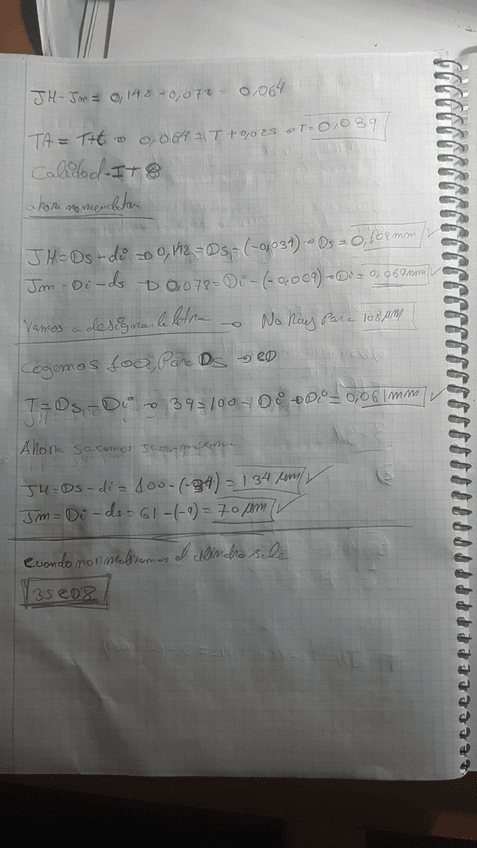 JH-Jm = 0,142 - 0,078 - 0,064
TA = T+t → 0,064 = T + 0,025 → T = 0,039
Calidad - IT 8
ahora
JH = Ds - di → 0,142 = Ds - (-0,034) → Ds = 0,108mm
Jm = Di - ds → 0,078 = Di - (-0,009) → Di = 0,069mm
Vamos a designar la letra → No hay para 108 μm
Cogemos 100, para Ds → eD
T = Ds - Di → 39 = 100 - Di → Di = 0,061mm
Ahora sacamos
JH = Ds - di = 100 - (-34) = 134 μm
Jm = Di - ds = 61 - (-9) = 70 μm
cuando normalizamos el
35 eD8